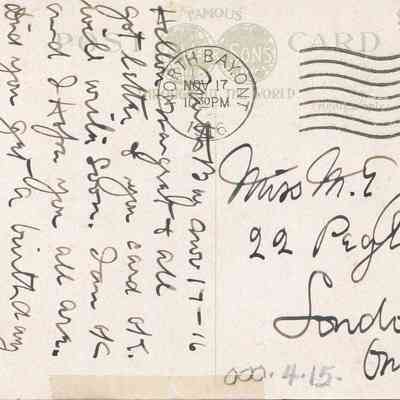 FAMOUS
POST CARD
& SONS
THE WORLD
NORTH BAY, ONT
NOV 17
10 30 PM
1916
North Bay Nov 17-16
Hello Margret & all
got letter & you card O.K.
will write soon. I am OK
and I hope you all are.
did you get a birthday
Miss M. E
22 Pegl
Londo
On
000.4.15.